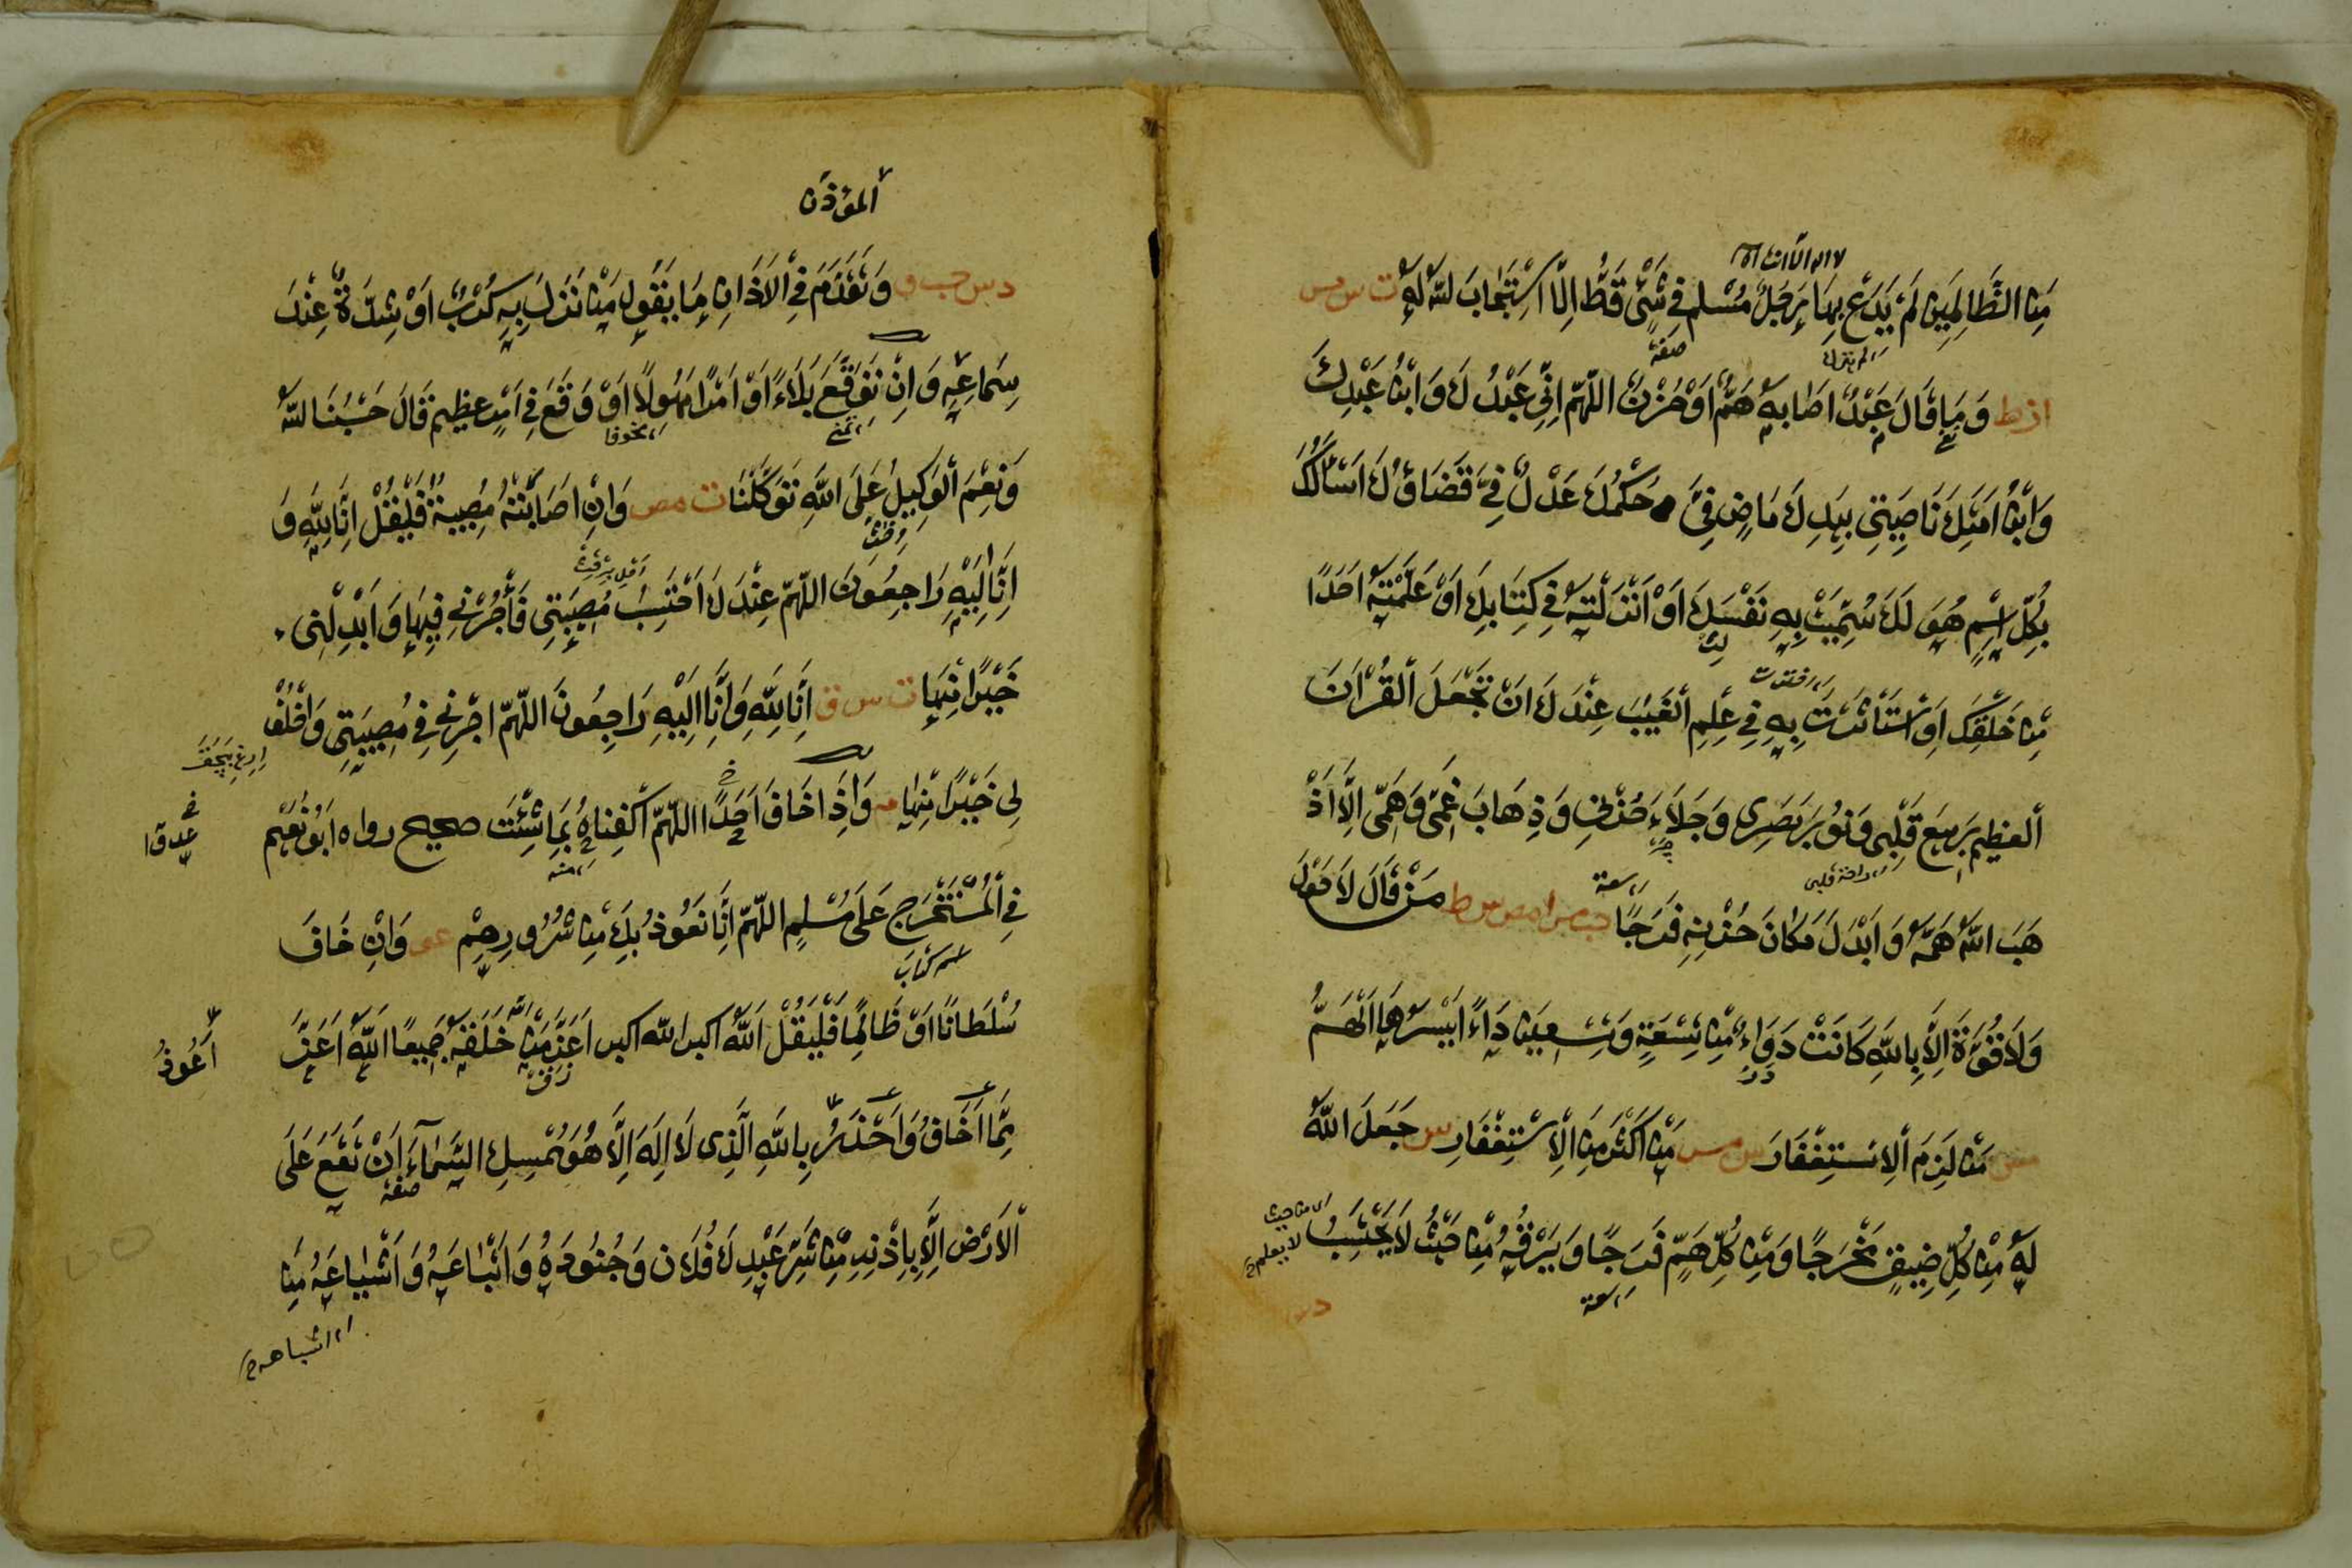 مِنَ الظَّالِمِينَ لَمْ يَدْعُ بِهَا رَجُلٌ مُسْلِم فِي شَيْءٍ قَطُّ إِلَّا اسْتَجَابَ اللهُ لَهُ ت س مس
ا ز ط وَمَا قَالَ عَبْدٌ اَصَابَهُ هَمٌّ اَوْ حُزْنٌ اللّهُمَّ اِنِّي عَبْدُكَ وَابْنُ عَبْدِكَ
وَابْنُ اَمَتِكَ نَاصِيَتِي بِيَدِكَ مَاضٍ فِيَّ حُكْمُكَ عَدْلٌ فِيَّ قَضَاؤُكَ اَسْاَلُكَ
بِكُلِّ اسْمٍ هُوَ لَكَ سَمَّيْتَ بِهِ نَفْسَكَ اَوْ اَنْزَلْتَهُ فِي كِتَابِكَ اَوْ عَلَّمْتَهُ اَحَدًا
مِنْ خَلْقِكَ اَوِ اسْتَأْثَرْتَ بِهِ فِي عِلْمِ الْغَيْبِ عِنْدَكَ اَنْ تَجْعَلَ الْقُرْآنَ
الْعَظِيمَ رَبِيعَ قَلْبِي وَنُورَ بَصَرِي وَجَلَاءَ حُزْنِي وَذِهَابَ غَمِّي وَهَمِّي اِلَّا اَذْ
هَبَ اللهُ هَمَّهُ وَاَبْدَلَ مَكَانَ حُزْنِهِ فَرَجًا حب مس ا مص س ط مَنْ قَالَ لَا حَوْلَ
وَلَا قُوَّةَ اِلَّا بِاللهِ كَانَتْ دَوَاءً مِنْ تِسْعَةٍ وَتِسْعِينَ دَاءً اَيْسَرُهَا الْهَمُّ
مس مَنْ لَزِمَ الْاِسْتِغْفَارَ س مس مَنْ اَكْثَرَ مِنَ الْاِسْتِغْفَارِ س جَعَلَ اللهُ
لَهُ مِنْ كُلِّ ضِيقٍ مَخْرَجًا وَمِنْ كُلِّ هَمٍّ فَرَجًا وَيَرْزُقُهُ مِنْ حَيْثُ لَا يَحْتَسِبُ
صفة
سعة
اى من حيث
لا يعلم
سعة
الْمُؤَذِّنُ
د س حب ق وَتَقَدَّمَ فِي الْاَذَانِ مَا يَقُولُ مَنْ نَزَلَ بِهِ كَرْبٌ اَوْ شِدَّةٌ عِنْدَ
سِمَاعِهِ وَاِنْ تَوَقَّعَ بَلَاءً اَوْ اَمْرًا مَهُولًا اَوْ وَقَعَ فِي اَمْرٍ عَظِيمٍ قَالَ حَسْبُنَا اللهُ
مخوفا
وَنِعْمَ الْوَكِيلُ عَلَى اللهِ تَوَكَّلْنَا ت مص وَاِنْ اَصَابَتْهُ مُصِيبَةٌ فَلْيَقُلْ اِنَّا لِلهِ وَ
اِنَّا اِلَيْهِ رَاجِعُونَ اللّهُمَّ عِنْدَكَ اَحْتَسِبُ مُصِيبَتِي فَأْجُرْنِي فِيهَا وَاَبْدِلْنِي
خَيْرًا مِنْهَا ت س ق اِنَّا لِلهِ وَاِنَّا اِلَيْهِ رَاجِعُونَ اللّهُمَّ اجُرْنِي فِي مُصِيبَتِي وَاخْلُفْ
لِي خَيْرًا مِنْهَا م وَاِذَا خَافَ اَحَدًا اللّهُمَّ اكْفِنَاهُ بِمَا شِئْتَ صحيح رواه اَبُو نُعَيْم
عدوا
فِي الْمُسْتَخْرَجِ عَلَى مُسْلِمٍ اللّهُمَّ اِنَّا نَعُوذُ بِكَ مِنْ شُرُورِهِمْ عو وَاِنْ خَافَ
اسم كتاب
سُلْطَانًا اَوْ ظَالِمًا فَلْيَقُلْ اَللهُ اكبر الله اكبر اَعَزُّ مِنْ خَلْقِهِ جَمِيعًا اَللهُ اَعَزُّ
اَعُوذُ
مِمَّا اَخَافُ وَاَحْذَرُ بِاللهِ الَّذِي لَا اِلَهَ اِلَّا هُوَ مُمْسِكِ السَّمَاءِ اَنْ تَقَعَ عَلَى
صفة
الْاَرْضِ اِلَّا بِاِذْنِهِ مِنْ شَرِّ عَبْدِكَ فُلَانٍ وَجُنُودِهِ وَاَتْبَاعِهِ وَاَشْيَاعِهِ مِنَ